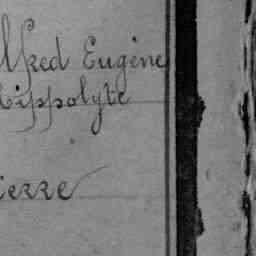 lfred Eugène
Hippolyte
ierre